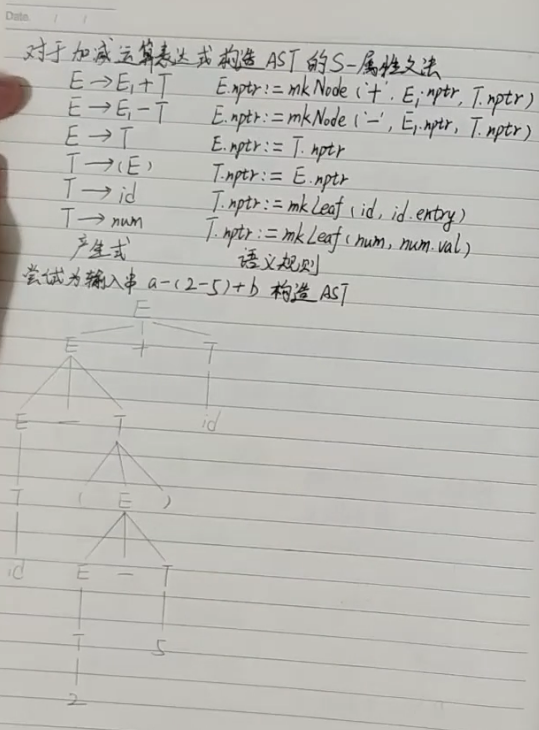 Date. / /
对于加减运算表达式构造AST的S-属性文法
E → E₁ + T E.nptr := mkNode ('+', E₁.nptr, T.nptr)
E → E₁ - T E.nptr := mkNode ('-', E₁.nptr, T.nptr)
E → T E.nptr := T.nptr
T → (E) T.nptr := E.nptr
T → id T.nptr := mkLeaf (id, id.entry)
T → num T.nptr := mkLeaf (num, num.val)
产生式 语义规则
尝试为输入串 a-(2-5)+b 构造AST
E
E + T
E - T id
T ( E )
id E - T
T 5
2